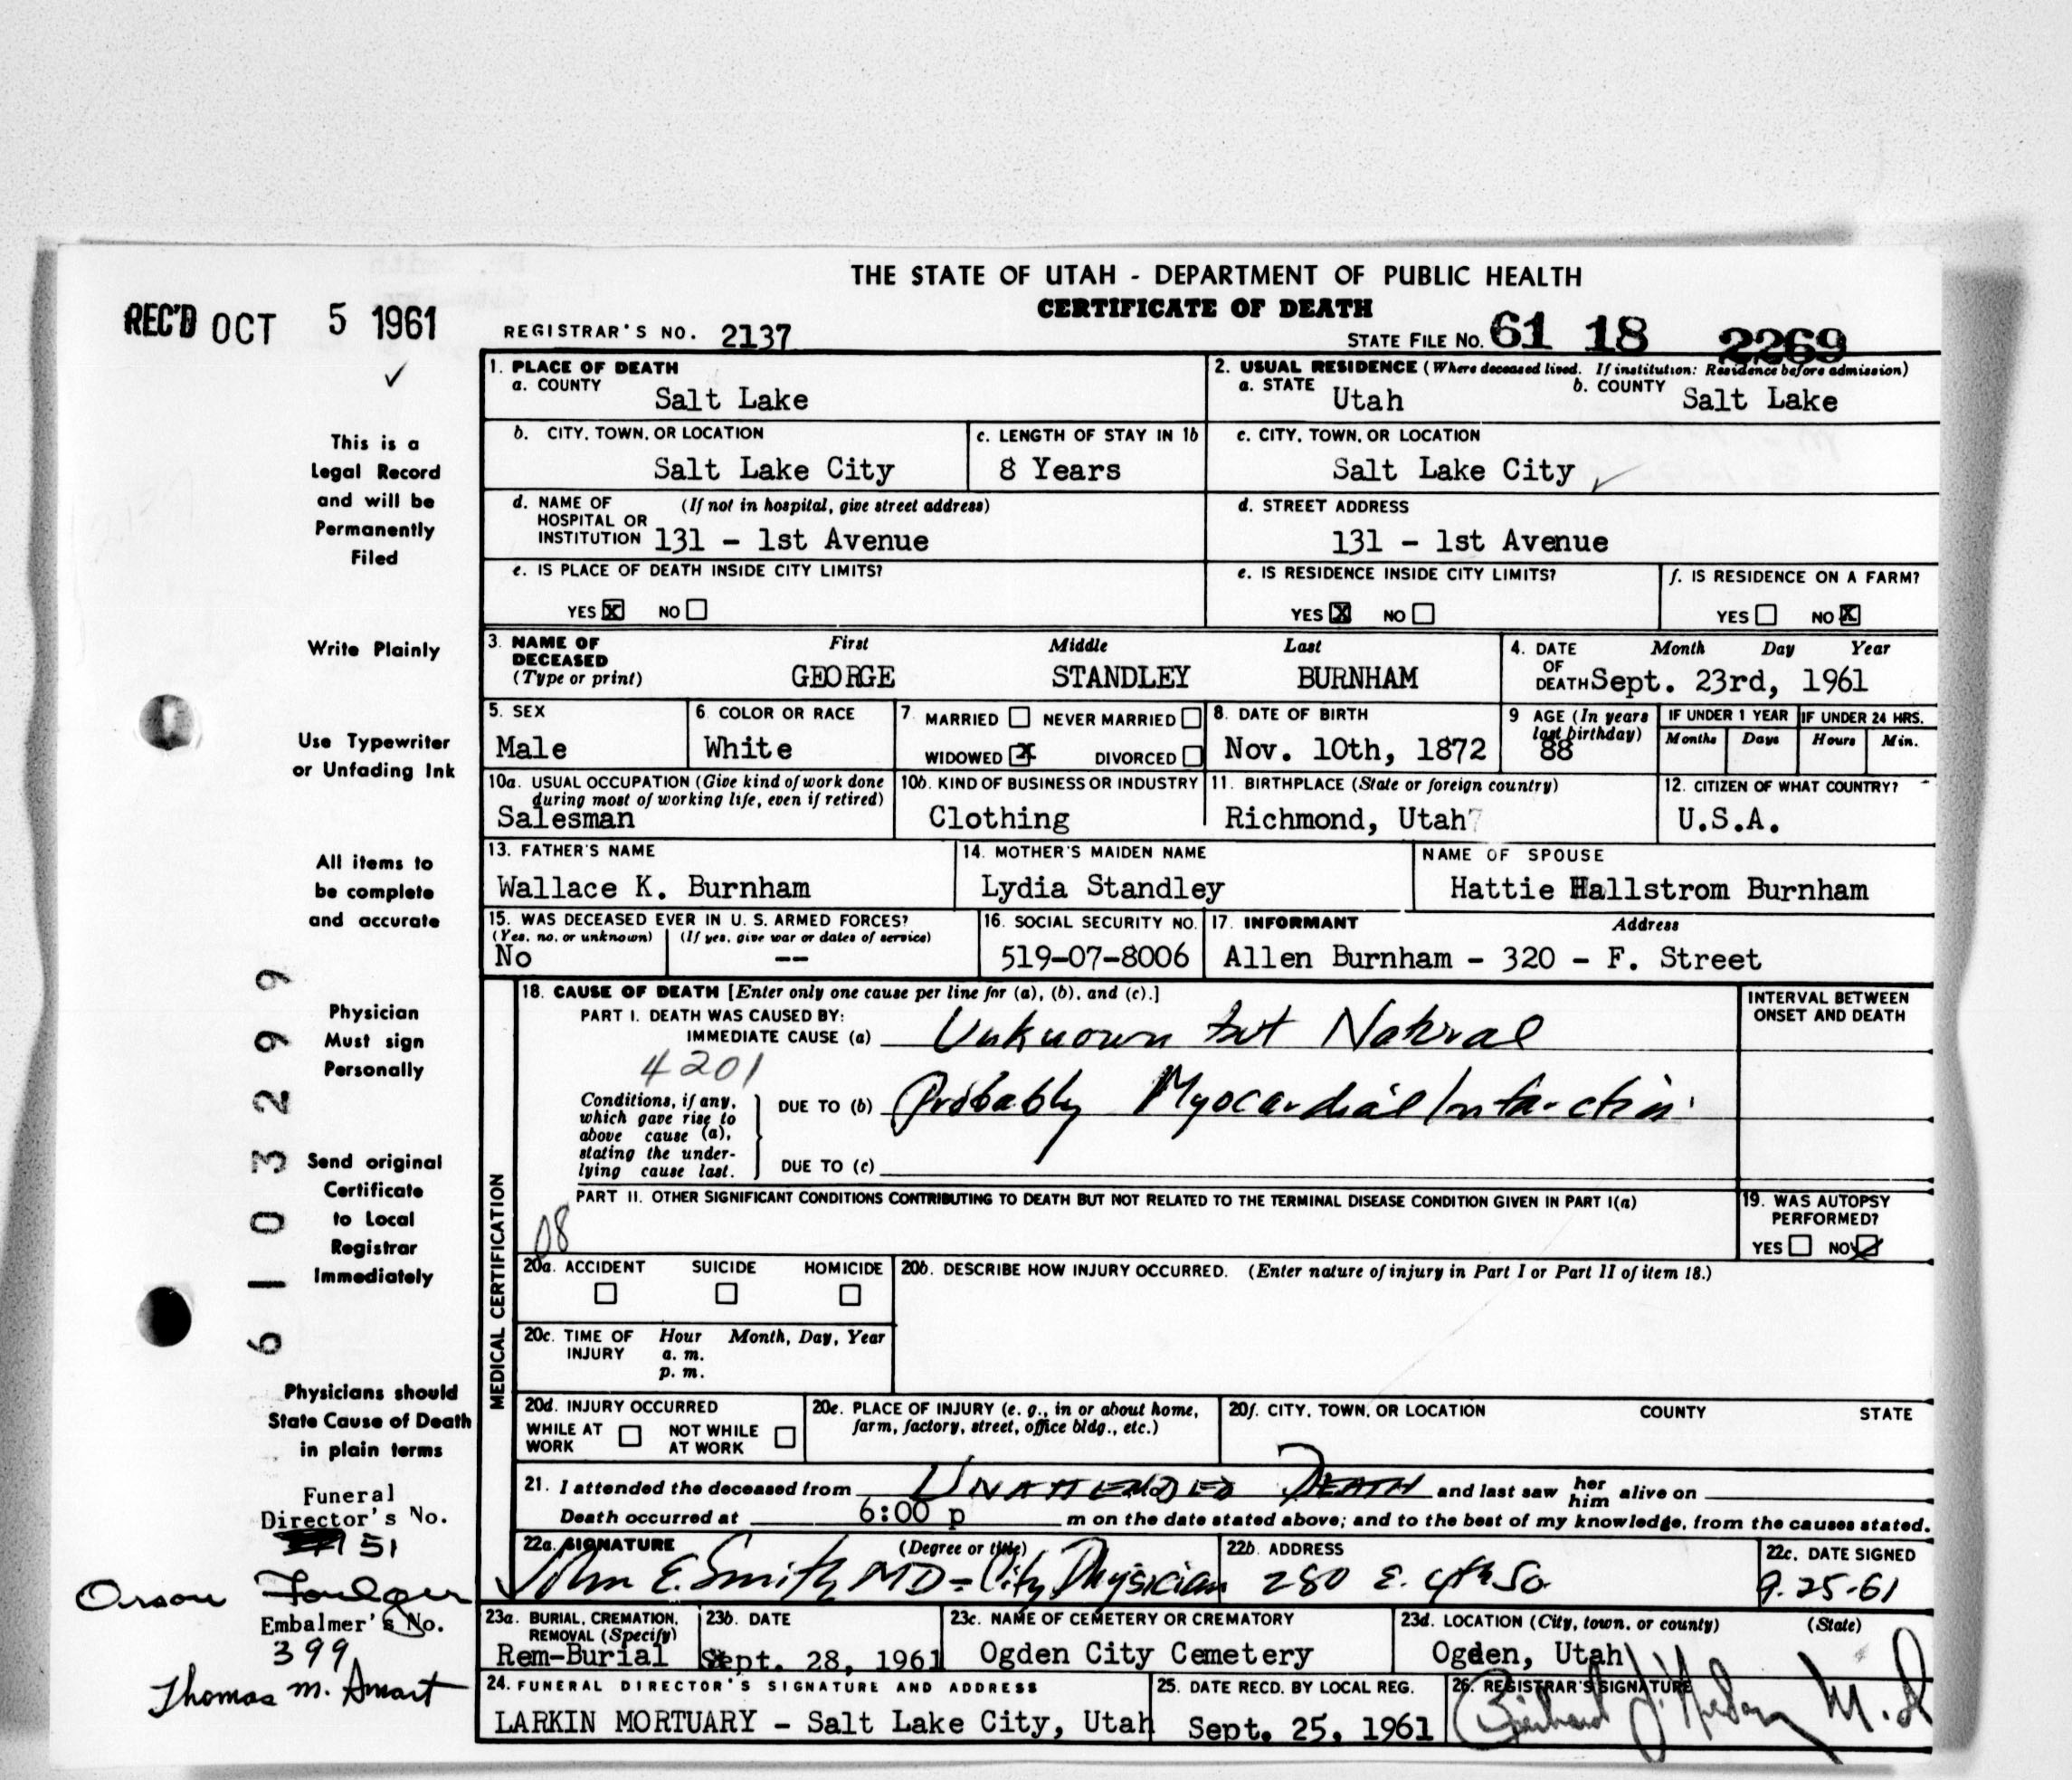 THE STATE OF UTAH - DEPARTMENT OF PUBLIC HEALTH
CERTIFICATE OF DEATH
REC'D OCT 5 1961
REGISTRAR'S NO. 2137
STATE FILE NO. 61 18 2269
This is a
Legal Record
and will be
Permanently
Filed
Write Plainly
Use Typewriter
or Unfading Ink
All items to
be complete
and accurate
Physician
Must sign
Personally
Send original
Certificate
to Local
Registrar
Immediately
Physicians should
State Cause of Death
in plain terms
6103299
Funeral
Director's No.
51
Orson Foulger
Embalmer's No.
399
Thomas M. Smart
1. PLACE OF DEATH
a. COUNTY Salt Lake
2. USUAL RESIDENCE (Where deceased lived. If institution: Residence before admission)
a. STATE Utah b. COUNTY Salt Lake
b. CITY, TOWN, OR LOCATION
Salt Lake City
c. LENGTH OF STAY IN 1b
8 Years
c. CITY, TOWN, OR LOCATION
Salt Lake City
d. NAME OF (If not in hospital, give street address)
HOSPITAL OR
INSTITUTION 131 - 1st Avenue
d. STREET ADDRESS
131 - 1st Avenue
e. IS PLACE OF DEATH INSIDE CITY LIMITS?
YES X NO
e. IS RESIDENCE INSIDE CITY LIMITS?
YES X NO
f. IS RESIDENCE ON A FARM?
YES NO X
3. NAME OF DECEASED (Type or print)
First Middle Last
GEORGE STANDLEY BURNHAM
4. DATE OF DEATH Month Day Year
Sept. 23rd, 1961
5. SEX
Male
6. COLOR OR RACE
White
7. MARRIED NEVER MARRIED
WIDOWED X DIVORCED
8. DATE OF BIRTH
Nov. 10th, 1872
9 AGE (In years last birthday)
88
IF UNDER 1 YEAR
Months Days
IF UNDER 24 HRS.
Hours Min.
10a. USUAL OCCUPATION (Give kind of work done
during most of working life, even if retired)
Salesman
10b. KIND OF BUSINESS OR INDUSTRY
Clothing
11. BIRTHPLACE (State or foreign country)
Richmond, Utah
12. CITIZEN OF WHAT COUNTRY?
U.S.A.
13. FATHER'S NAME
Wallace K. Burnham
14. MOTHER'S MAIDEN NAME
Lydia Standley
NAME OF SPOUSE
Hattie Hallstrom Burnham
15. WAS DECEASED EVER IN U. S. ARMED FORCES?
(Yes, no, or unknown) (If yes, give war or dates of service)
No --
16. SOCIAL SECURITY NO.
519-07-8006
17. INFORMANT Address
Allen Burnham - 320 - F. Street
MEDICAL CERTIFICATION
18. CAUSE OF DEATH [Enter only one cause per line for (a), (b), and (c).]
INTERVAL BETWEEN
ONSET AND DEATH
PART I. DEATH WAS CAUSED BY:
IMMEDIATE CAUSE (a) Unknown but Natural
4201
Conditions, if any,
which gave rise to
above cause (a),
stating the under-
lying cause last.
DUE TO (b) Probably Myocardial Infarction
DUE TO (c)
PART II. OTHER SIGNIFICANT CONDITIONS CONTRIBUTING TO DEATH BUT NOT RELATED TO THE TERMINAL DISEASE CONDITION GIVEN IN PART I(a)
08
19. WAS AUTOPSY
PERFORMED?
YES NO
20a. ACCIDENT SUICIDE HOMICIDE
20b. DESCRIBE HOW INJURY OCCURRED. (Enter nature of injury in Part I or Part II of item 18.)
20c. TIME OF INJURY Hour Month, Day, Year
a. m.
p. m.
20d. INJURY OCCURRED
WHILE AT WORK NOT WHILE AT WORK
20e. PLACE OF INJURY (e. g., in or about home,
farm, factory, street, office bldg., etc.)
20f. CITY, TOWN, OR LOCATION COUNTY STATE
21. I attended the deceased from UNATTENDED DEATH and last saw her him alive on
Death occurred at 6:00 p m on the date stated above; and to the best of my knowledge, from the causes stated.
22a. SIGNATURE (Degree or title)
John E. Smith MD - City Physician
22b. ADDRESS
280 E. 4th So.
22c. DATE SIGNED
9.25-61
23a. BURIAL, CREMATION,
REMOVAL (Specify)
Rem-Burial
23b. DATE
Sept. 28, 1961
23c. NAME OF CEMETERY OR CREMATORY
Ogden City Cemetery
23d. LOCATION (City, town, or county) (State)
Ogden, Utah
24. FUNERAL DIRECTOR'S SIGNATURE AND ADDRESS
LARKIN MORTUARY - Salt Lake City, Utah
25. DATE RECD. BY LOCAL REG.
Sept. 25, 1961
26. REGISTRAR'S SIGNATURE
M.D